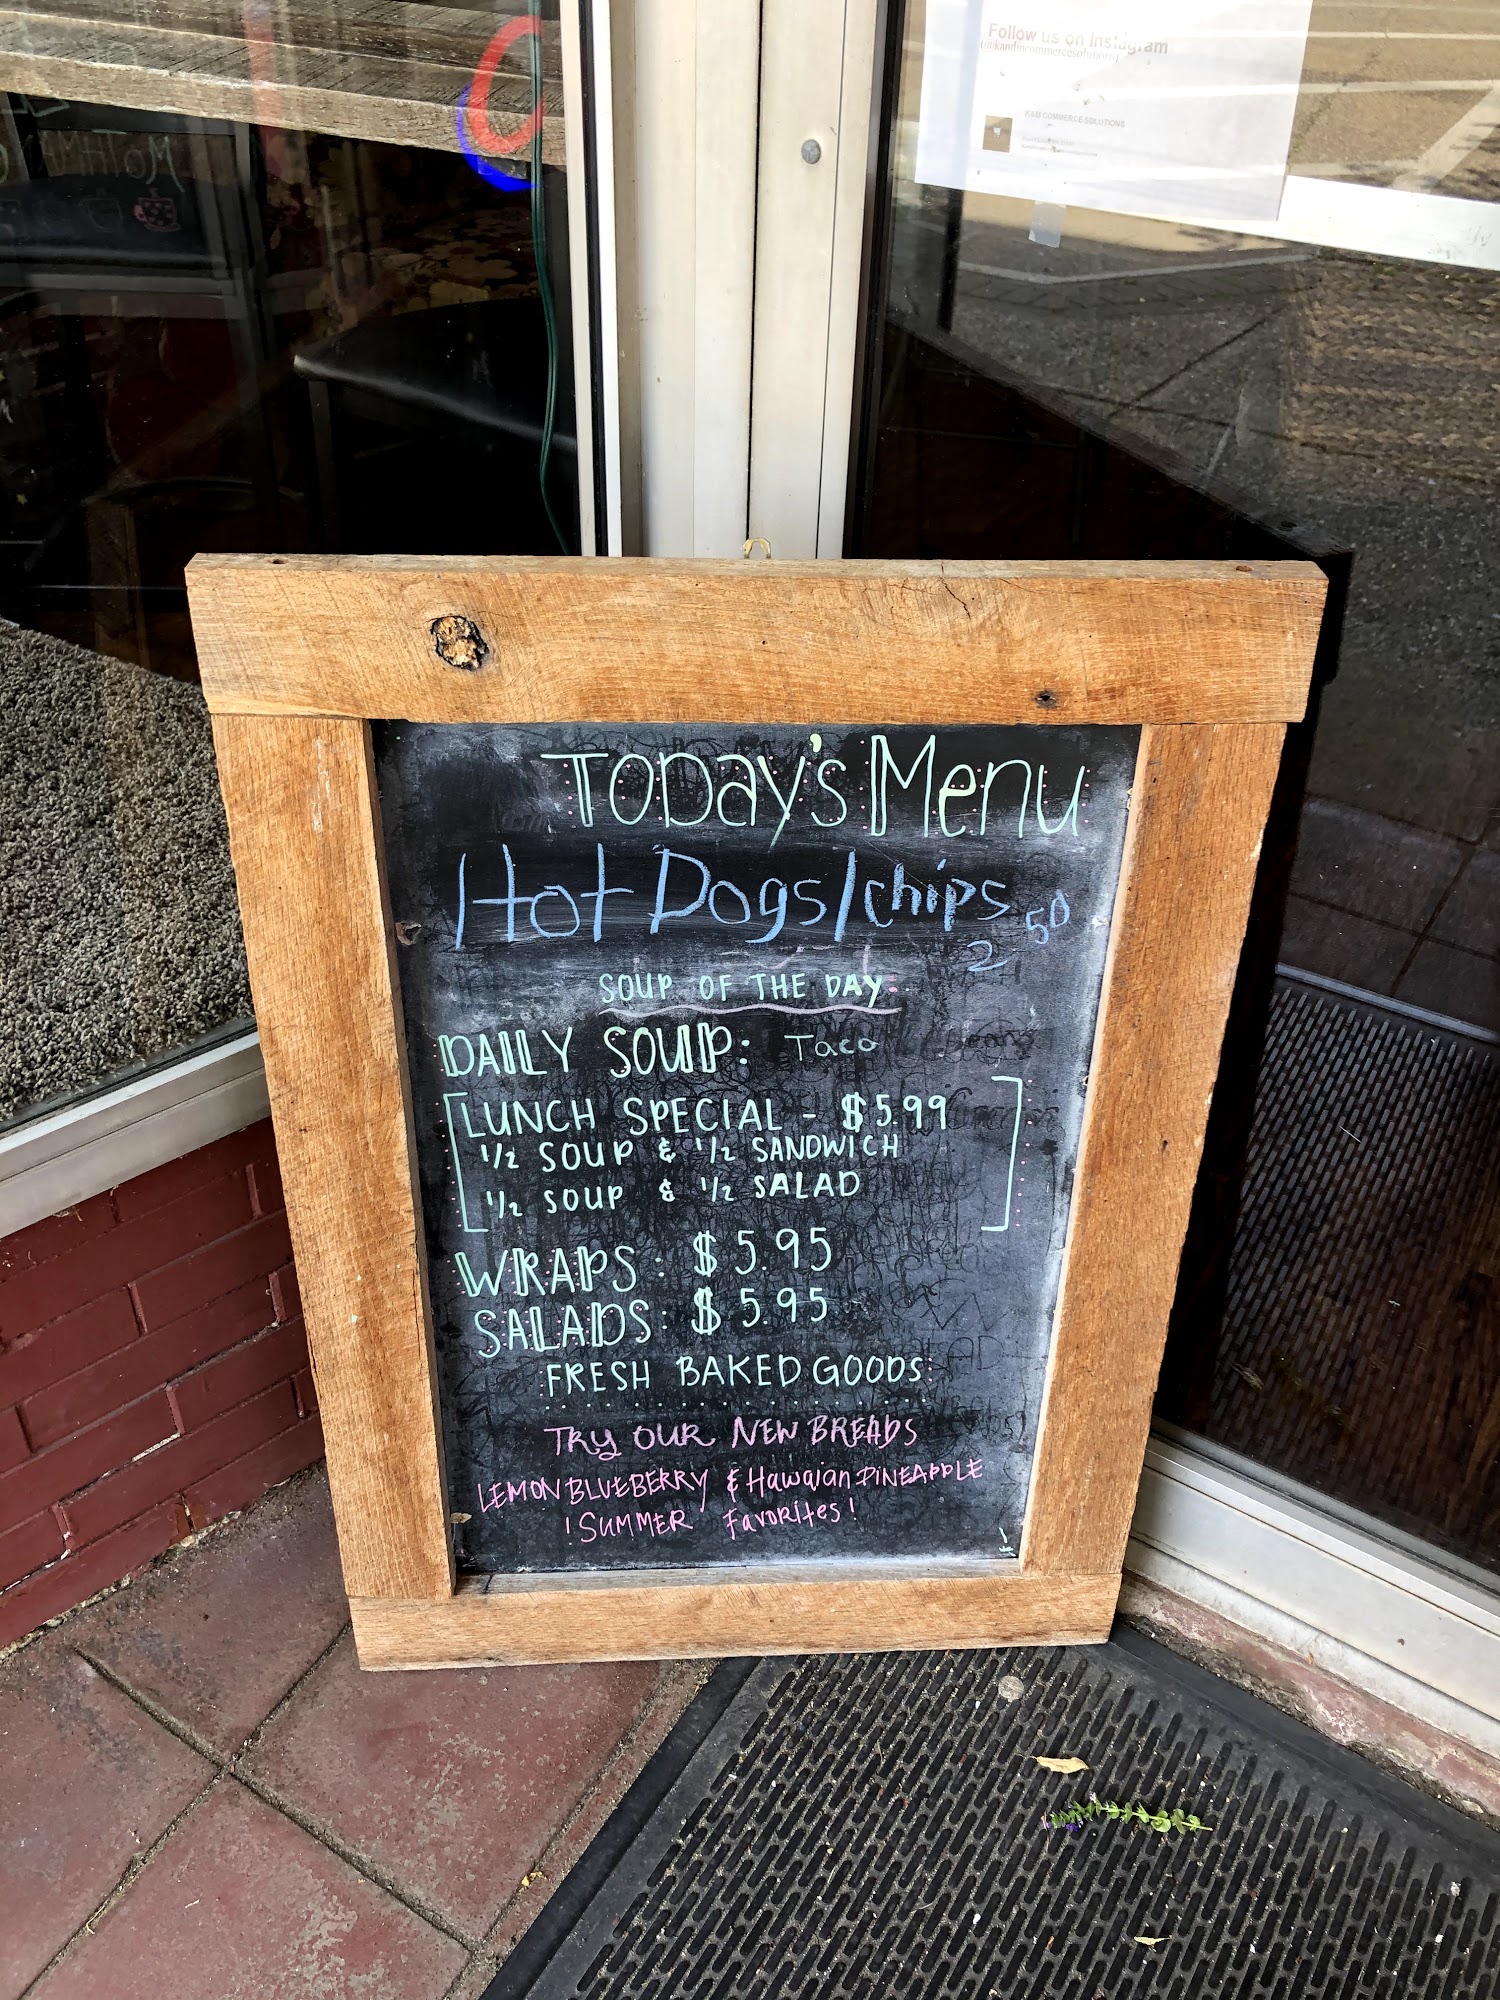 Follow us on Instagram
K&M COMMERCE SOLUTIONS
MOTHMAN
TODay's Menu
Hot Dogs/chips 2 50
SOUP OF THE DAY
DAILY SOUP: Taco
LUNCH SPECIAL - $5.99
1/2 SOUP & 1/2 SANDWICH
1/2 SOUP & 1/2 SALAD
WRAPS: $5.95
SALADS: $5.95
FRESH BAKED GOODS
TRY OUR NEW BREADS
LEMON BLUEBERRY & Hawaiian PINEAPPLE
! SUMMER Favorites!